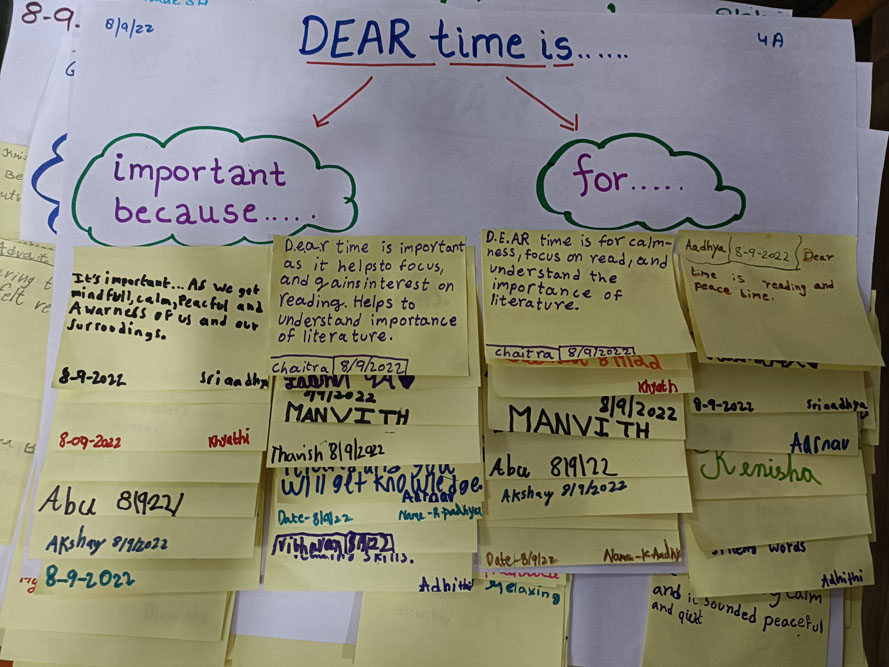 8-9.
8/9/22
DEAR time is......
4A
important
because.....
for.....
It's important... As we get
mindfull, calm, Peacful and
Awarness of us and our
surroodings.
8-9-2022 Sriaadhya
D.e.a.r time is important
as it helps to focus,
and gains interest on
reading. Helps to
understand importance
of literature.
Chaitra 8/9/2022
D.E.AR time is for calm-
ness, focus on read, and
understand the
importance of
literature.
Chaitra 8/9/2022
Aadhya 8-9-2022 Dear
time is reading and
peace time.
8-09-2022 Khyathi
Abu 8/9/22/
Akshay 8/9/2022
8-9-2022
MANVITH
Thavish 8/9/2022
will get knowledge.
Aarnav
Date-8/9/22 Name-R.padhya
skills.
Adhithi
Khyath
8/9/2022
MANVITH
Abu 8/9/22
Akshay 8/9/2022
Date-8/9/22
relaxing
8-9-2022 Sriaadhya
Aarnav
Kenisha
words
Adhithi
calm
and it sounded peaceful
and quit